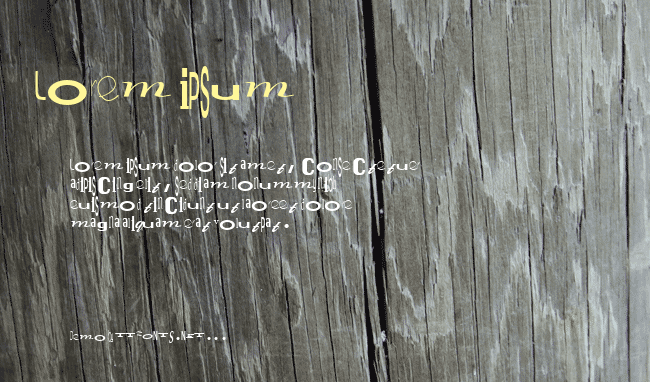 Lorem ipsum
Lorem ipsum dolor sit amet, ConseCtetue
adipisCing elit, sed diam nonummy nibh
euismod tinCidunt ut laoreet dolore
magna aliquam erat volutpat.